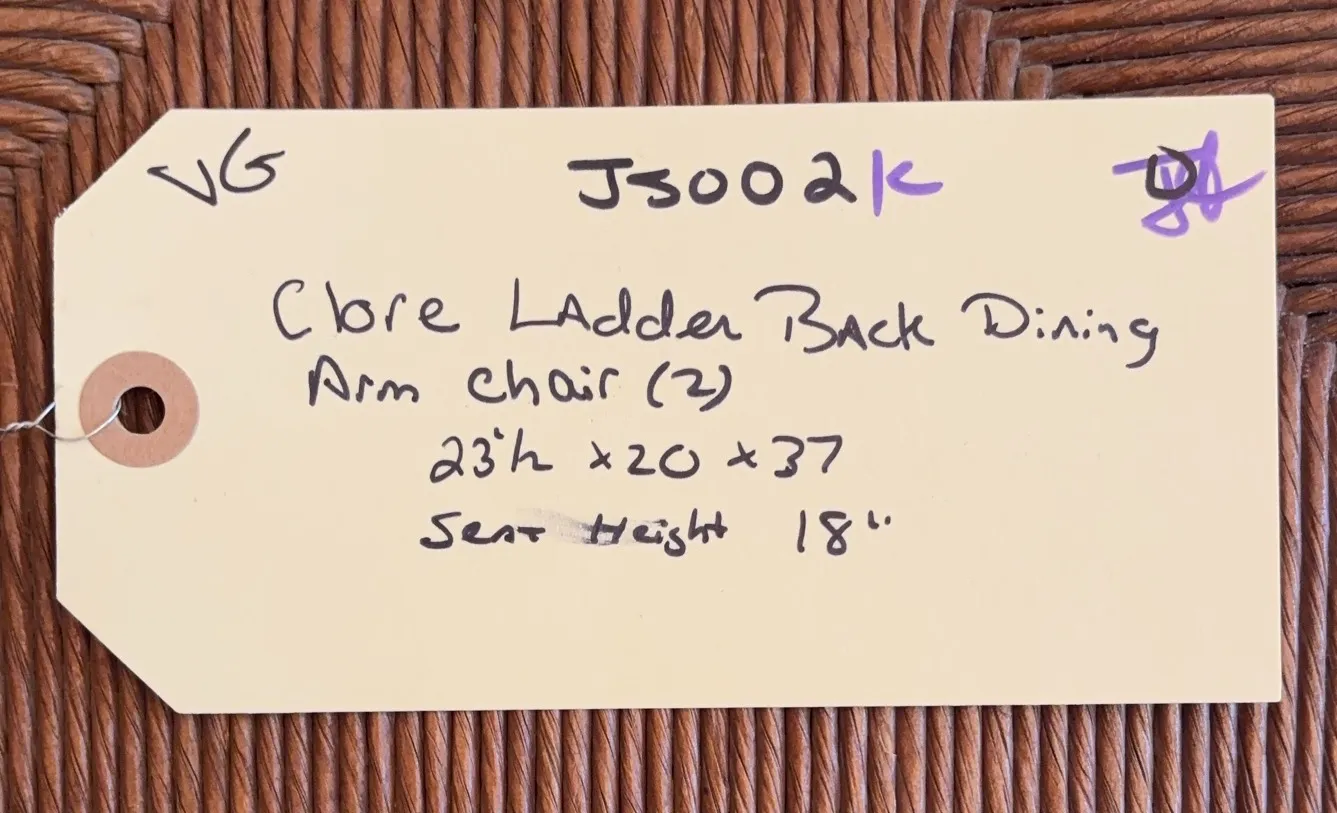 VG JS002K
Clore LAdder BAck Dining
Arm Chair (2)
23"h x 20 x 37
Seat Height 18"